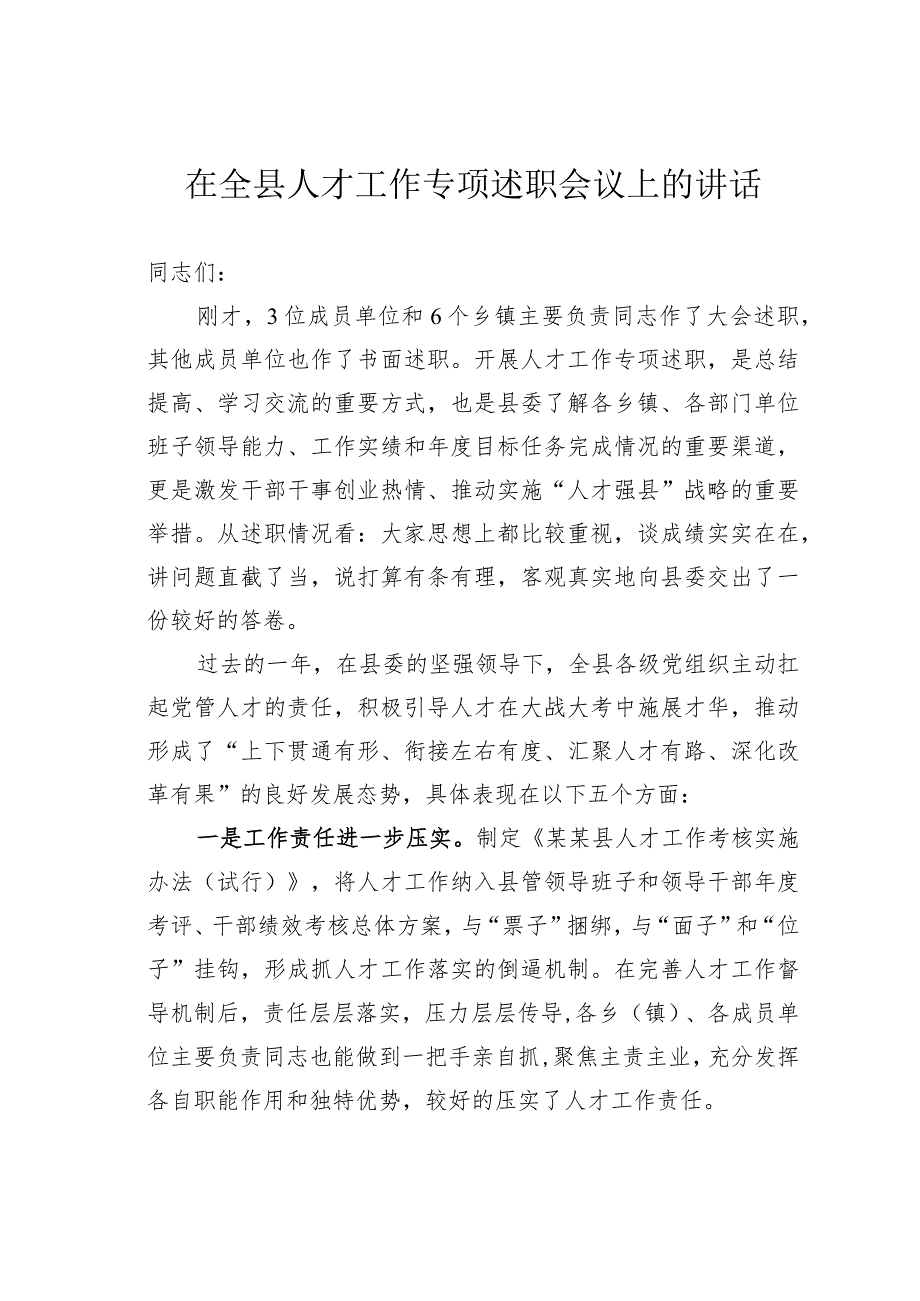 在全县人才工作专项述职会议上的讲话
同志们：
刚才，3位成员单位和6个乡镇主要负责同志作了大会述职，
其他成员单位也作了书面述职。开展人才工作专项述职，是总结
提高、学习交流的重要方式，也是县委了解各乡镇、各部门单位
班子领导能力、工作实绩和年度目标任务完成情况的重要渠道，
更是激发干部干事创业热情、推动实施“人才强县”战略的重要
举措。从述职情况看：大家思想上都比较重视，谈成绩实实在在，
讲问题直截了当，说打算有条有理，客观真实地向县委交出了一
份较好的答卷。
过去的一年，在县委的坚强领导下，全县各级党组织主动扛
起党管人才的责任，积极引导人才在大战大考中施展才华，推动
形成了“上下贯通有形、衔接左右有度、汇聚人才有路、深化改
革有果”的良好发展态势，具体表现在以下五个方面：
一是工作责任进一步压实。制定《某某县人才工作考核实施
办法（试行）》，将人才工作纳入县管领导班子和领导干部年度
考评、干部绩效考核总体方案，与“票子”捆绑，与“面子”和“位
子”挂钩，形成抓人才工作落实的倒逼机制。在完善人才工作督
导机制后，责任层层落实，压力层层传导,各乡（镇）、各成员单
位主要负责同志也能做到一把手亲自抓,聚焦主责主业，充分发挥
各自职能作用和独特优势，较好的压实了人才工作责任。